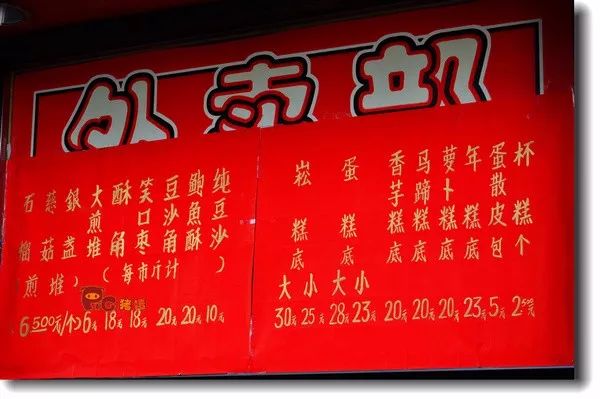 外卖部
石榴煎
慈菇堆
银盏
大煎堆
酥角
笑口枣
豆沙角
鲍鱼酥
纯豆沙
(每市斤计)
6元 18元 18元 20元 20元 10元
崧糕底
大 小
30元 25元
蛋糕底
大 小
28元 23元
香芋糕底
20元
马蹄糕底
20元
萝卜糕底
20元
年糕底
23元
蛋散皮包
5元
杯糕个
2.50元